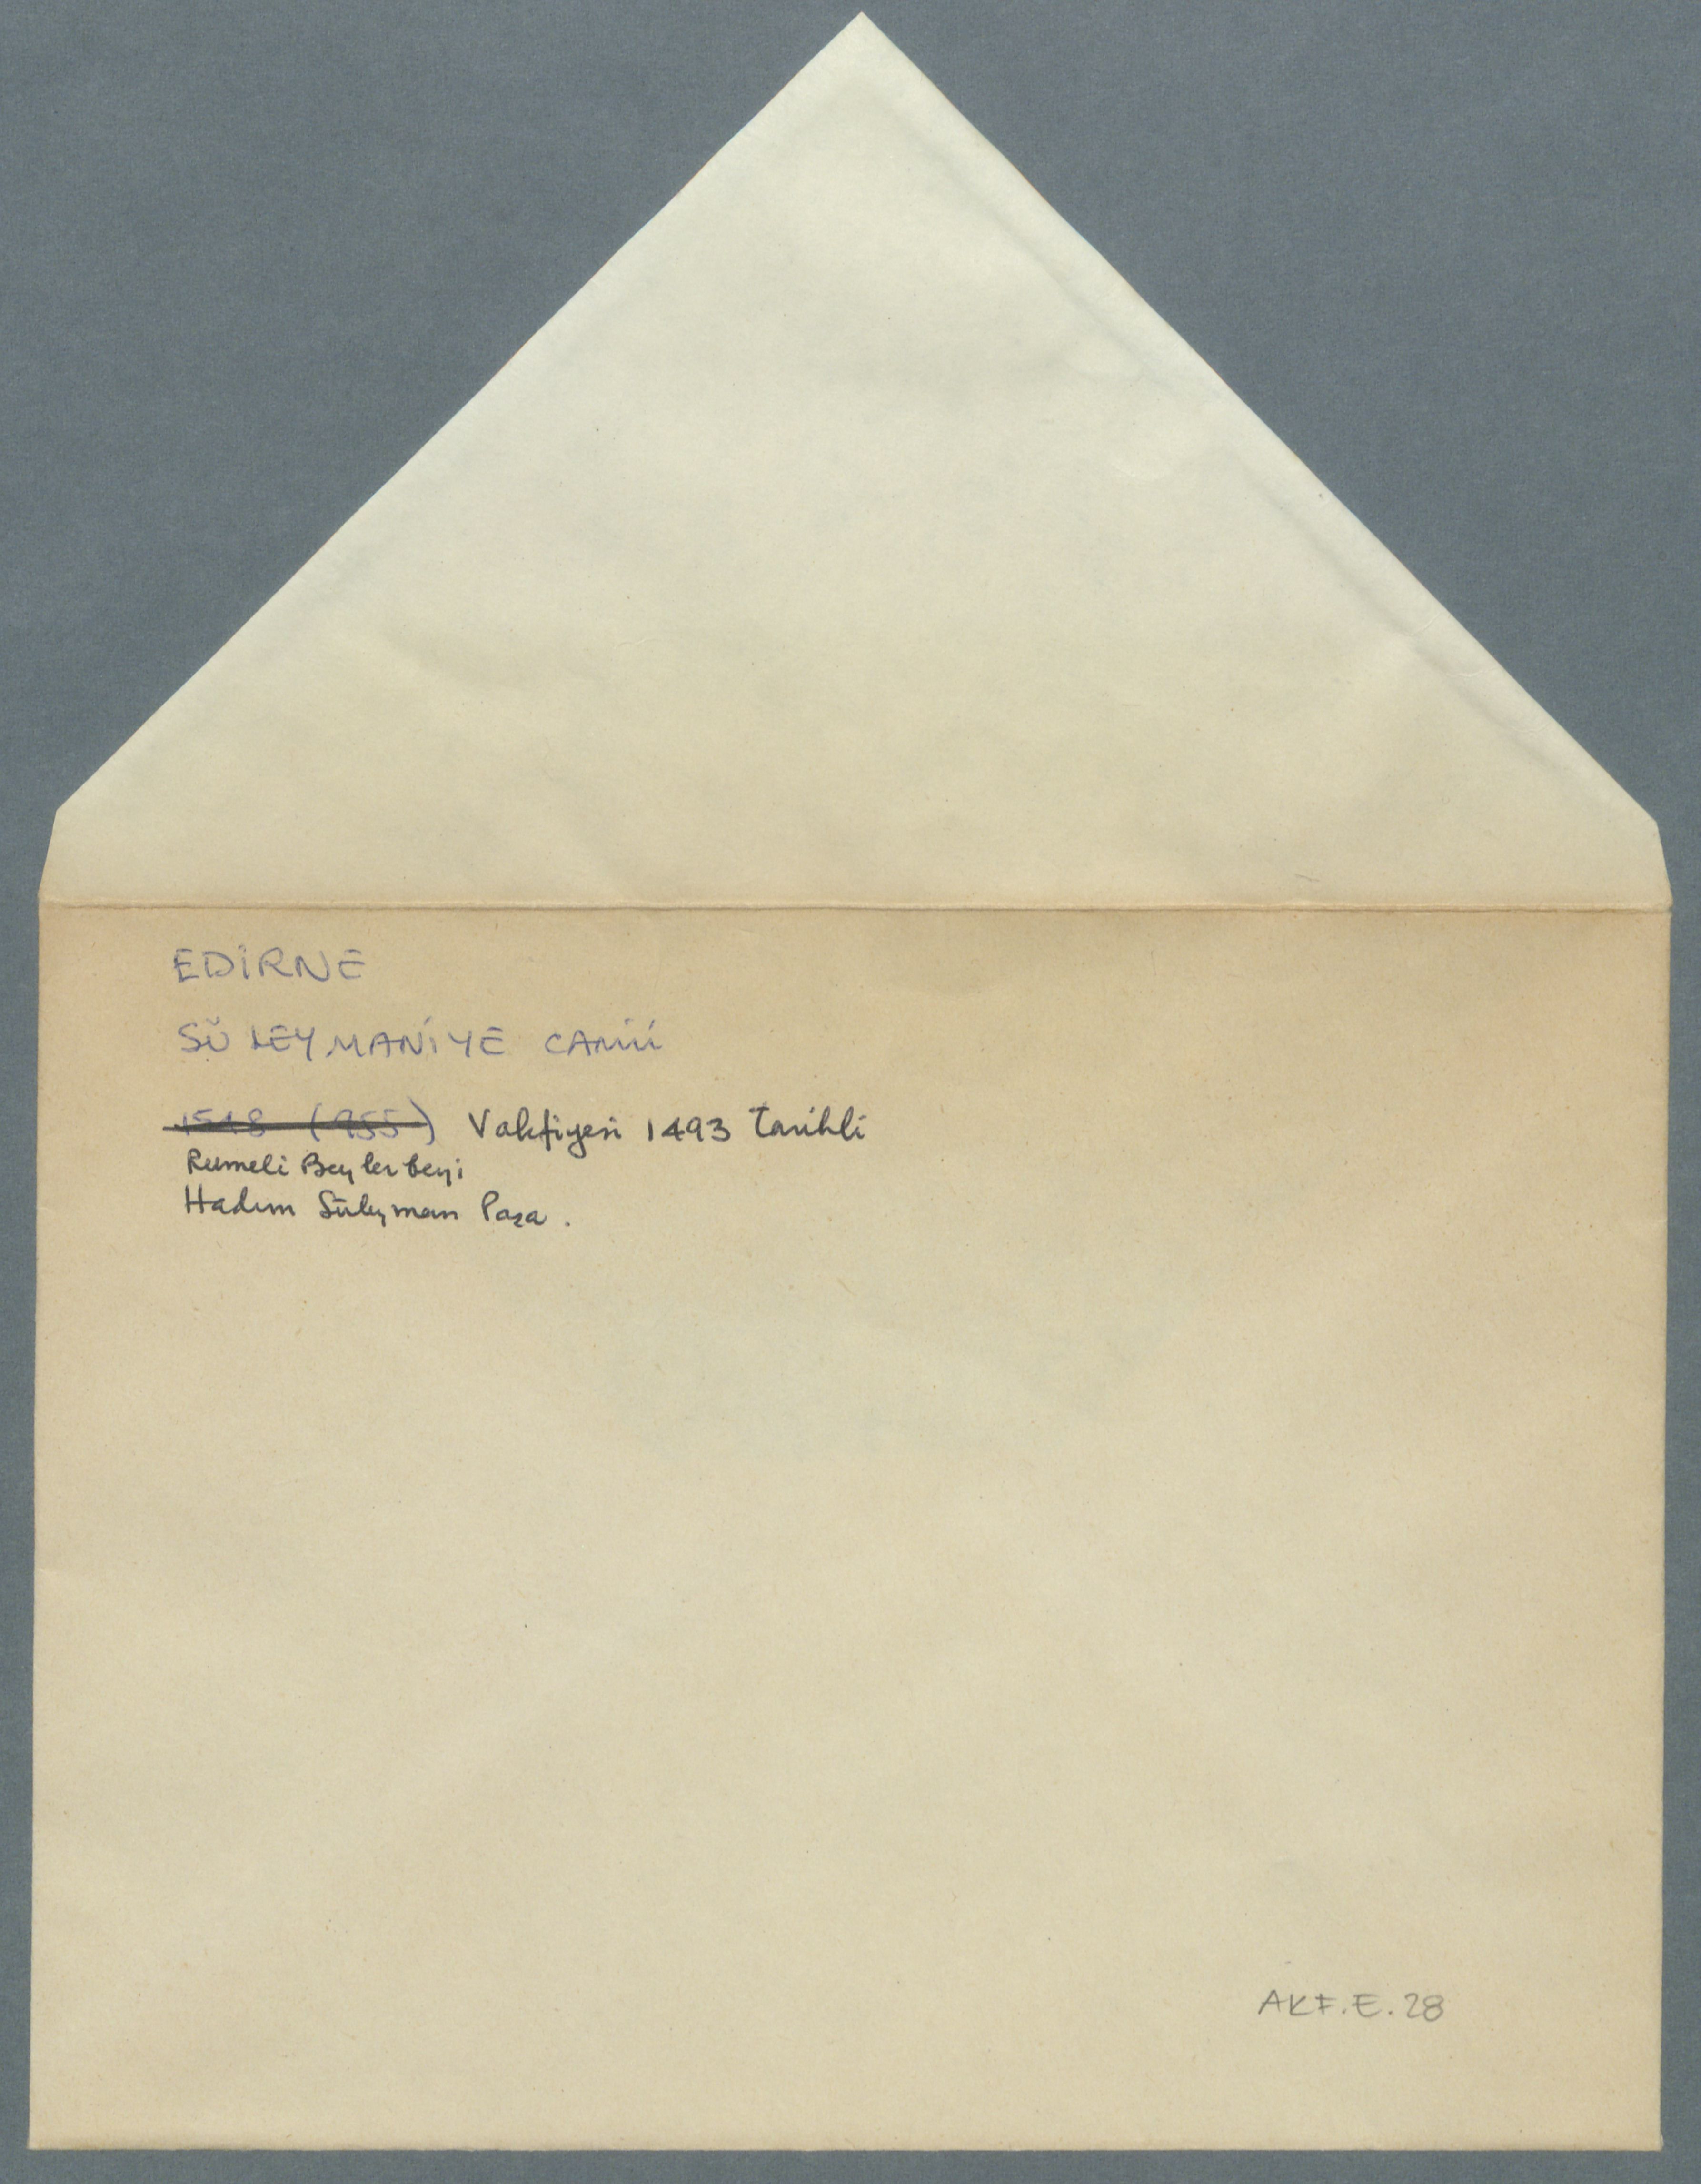 EDİRNE
SÜLEYMANİYE CAMİİ
1548 (955) Vakfiyesi 1493 tarihli
Rumeli Beylerbeyi
Hadım Süleyman Paşa.
AKF.E.28